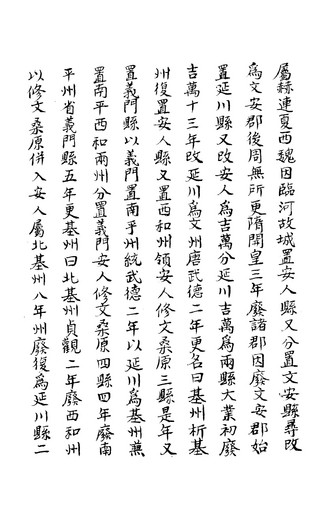 屬赫連夏西魏因臨河故城置安人縣又分置文安縣尋改
為文安郡後周無所更隋開皇三年廢諸郡因廢文安郡始
置延川縣又改安人為吉萬分延川吉萬為兩縣大業初廢
吉萬十三年改延川為文州唐武德二年更名曰基州析基
州復置安人縣又置西和州領安人修文桑原三縣是年又
置義門縣以義門置南平州統武德二年以延川為基州兼
置南平西和兩州分置義門安人修文桑原四縣四年廢南
平州省義門縣五年更基州曰北基州貞觀二年廢西和州
以修文桑原併入安人屬北基州八年州廢復為延川縣二